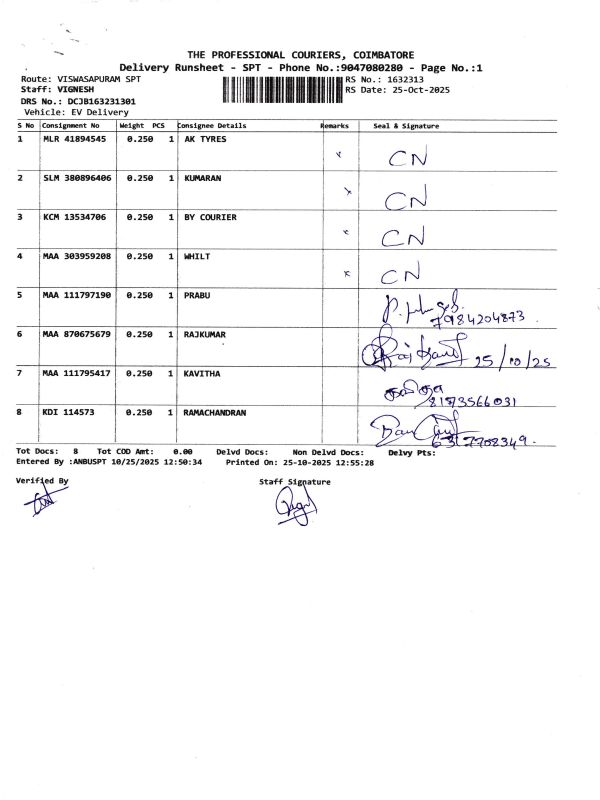 THE PROFESSIONAL COURIERS, COIMBATORE
Delivery Runsheet - SPT - Phone No.:9047080280 - Page No.:1
Route: VISWASAPURAM SPT
RS No.: 1632313
Staff: VIGNESH
RS Date: 25-Oct-2025
DRS No.: DCJB163231301
Vehicle: EV Delivery
S No Consignment No Weight PCS Consignee Details Remarks Seal & Signature
1 MLR 41894545 0.250 1 AK TYRES x CN
2 SLM 380896406 0.250 1 KUMARAN x CN
3 KCM 13534706 0.250 1 BY COURIER x CN
4 MAA 303959208 0.250 1 WHILT x CN
5 MAA 111797190 0.250 1 PRABU
7984204873
6 MAA 870675679 0.250 1 RAJKUMAR 25/10/25
7 MAA 111795417 0.250 1 KAVITHA
8 KDI 114573 0.250 1 RAMACHANDRAN
6317708349.
Tot Docs: 8 Tot COD Amt: 0.00 Delvd Docs: Non Delvd Docs: Delvy Pts:
Entered By :ANBUSPT 10/25/2025 12:50:34 Printed On: 25-10-2025 12:55:28
Verified By Staff Signature